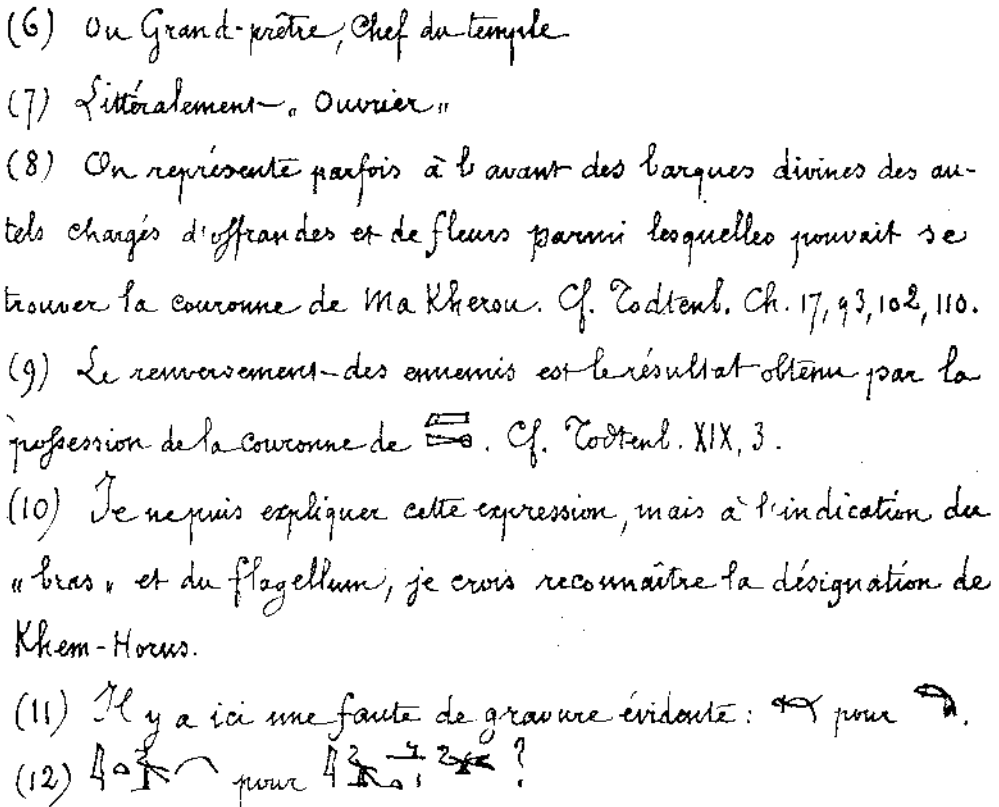 (6) Ou Grand-prêtre, Chef du temple
(7) Littéralement „ Ouvrier „
(8) On représente parfois à l'avant des barques divines des au-
tels chargés d'offrandes et de fleurs parmi lesquelles pouvait se
trouver la couronne de Ma Kherou. Cf. Todtenb. Ch. 17, 93, 102, 110.
(9) Le renversement des ennemis est le résultat obtenu par la
possession de la couronne de . Cf. Todtenb. XIX, 3.
(10) Je ne puis expliquer cette expression, mais à l'indication du
„ bras „ et du flagellum, je crois reconnaître la désignation de
Khem-Horus.
(11) Il y a ici une faute de gravure évidente : pour .
(12) pour ?